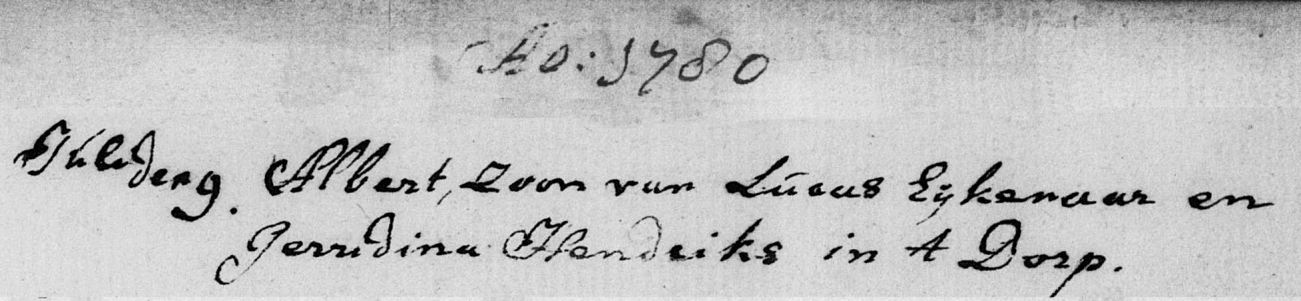 Ao: 1780
Julÿ den 9. Albert, Zoon van Lucas Eijkenaar en
Gerridina Hendriks in t Dorp.